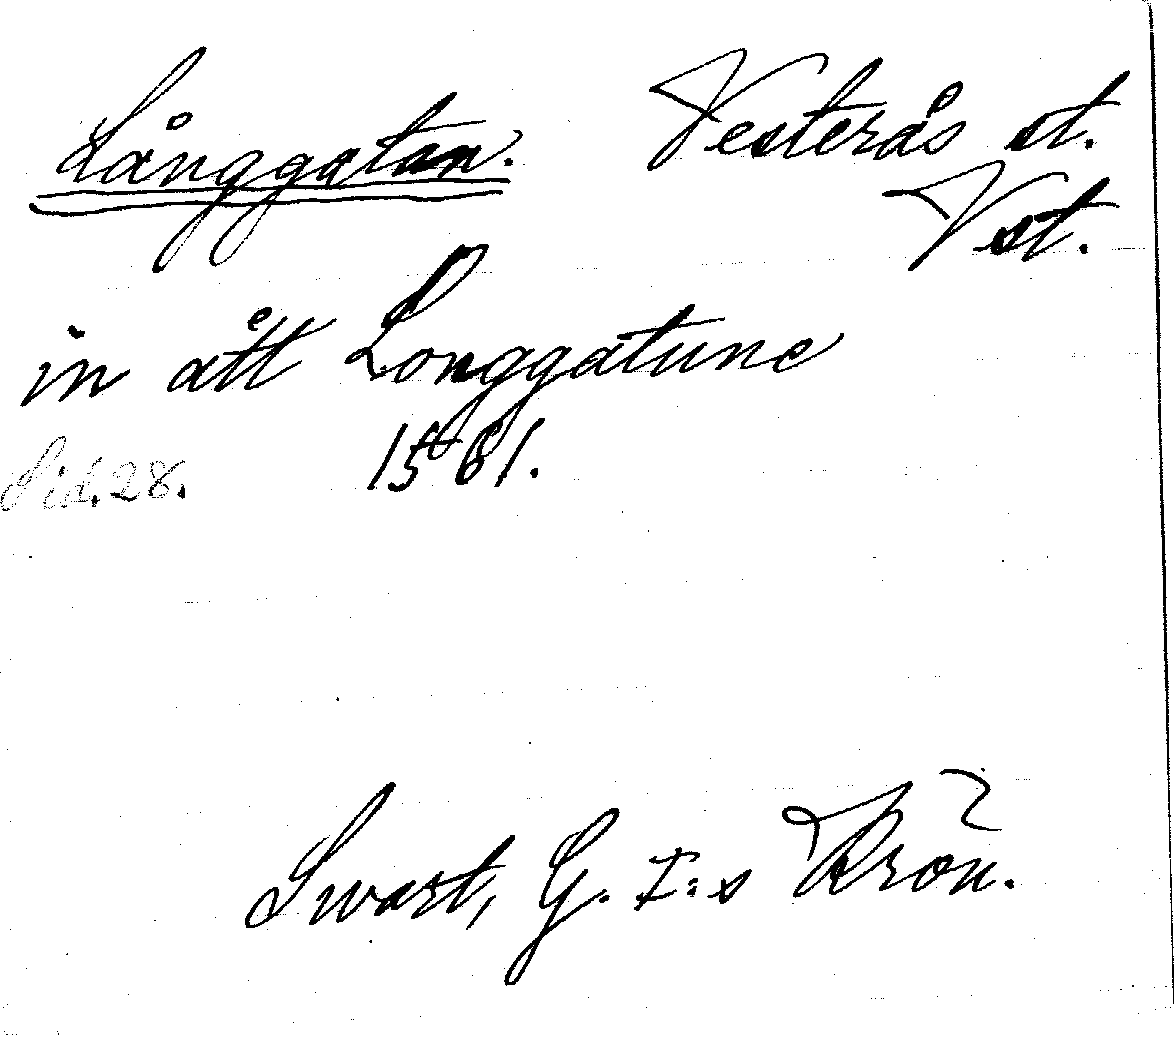 Långgatan. Vesterås st.
Vst.
inått Longgatune
Sid. 28. 1561.
Swart, G. I:s Krön.